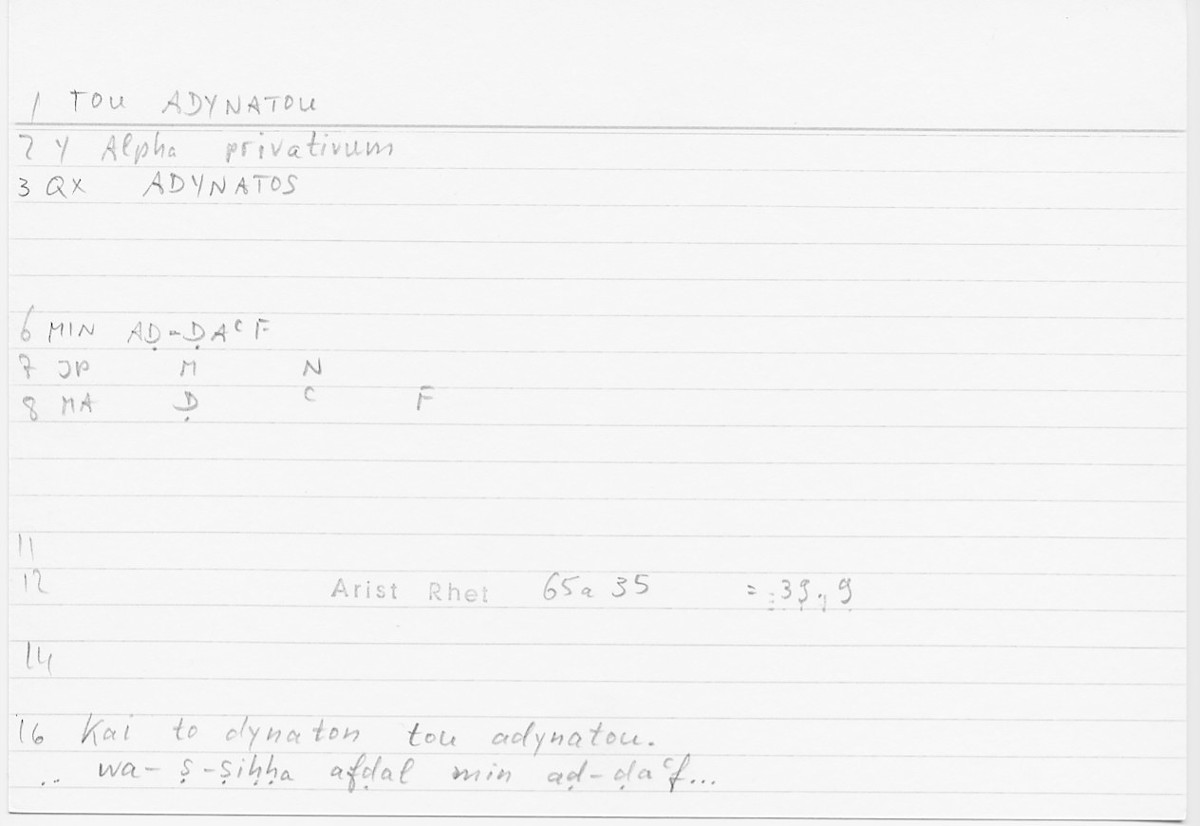 1 TOU ADYNATOU
2 Y Alpha privativum
3 QX ADYNATOS
6 MIN AḌ-ḌAᶜF
7 JP M N
8 MA Ḍ ᶜ F
11
12 Arist Rhet 65a 35 = 39,9
14
16 Kai to dynaton tou adynatou.
.. wa-ṣ-ṣiḥḥa afḍal min aḍ-ḍaᶜf...